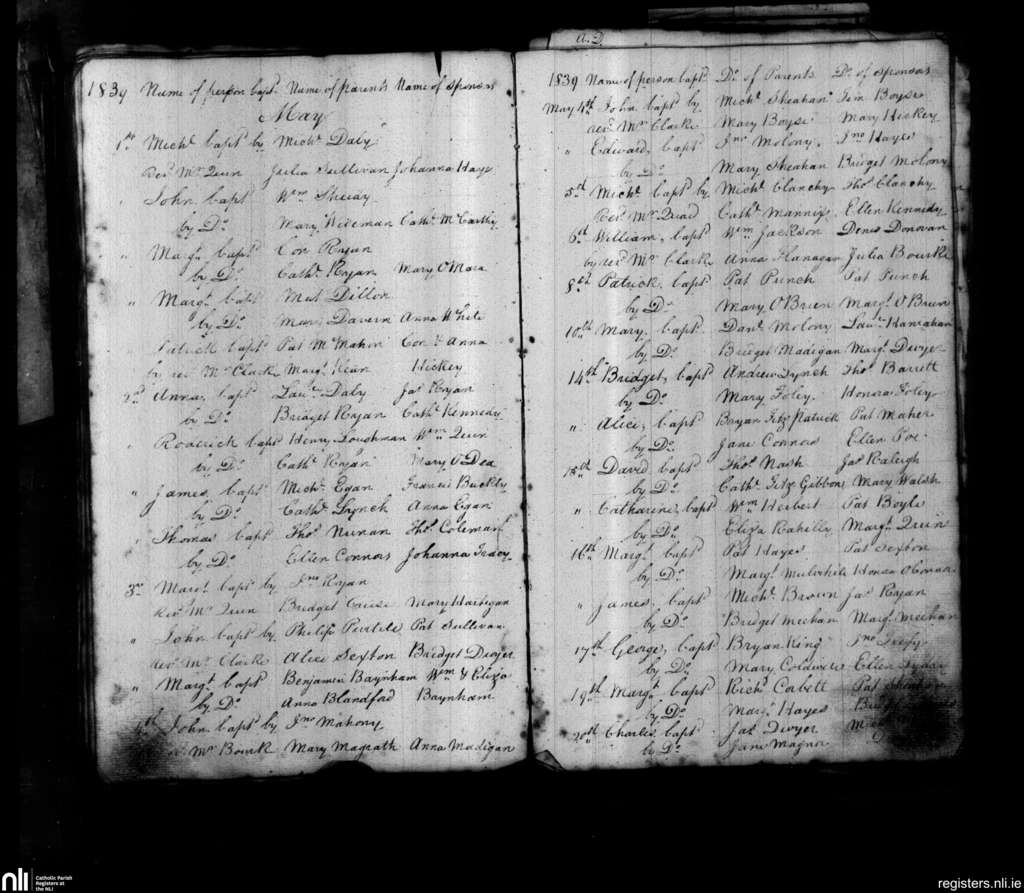 1839 Name of person bapt. Name of parents Name of Sponsors
May
1st Michl. bapt by Michl. Daly
Revd. Mr. Quin Julia Sullivan Johanna Hays
" John bapt Wm. Sheedy
by Do. Mary Wiseman Cathe. McCarthy
" Margt. bapt. Con Ryan
by Do. Cathe. Ryan Mary O'Mara
" Margt. bapt Mat Dillon
by Do. Mary Davern Anna White
Patrick bapt Pat McMahon Con & Anna
by revd Mr. Clarke Margt. Kean Hickey
2nd Anna, bapt Laue. Daly Jas. Ryan
by Do. Bridget Ryan Cathe. Kennedy
" Roderick bapt Henry Loughman Wm. Quin
by Do. Cathe. Ryan Mary O'Dea
" James, bapt Michl. Egan Francis Buckley
by Do. Cathe. Lynch Anna Egan
" Thomas bapt Thos. Nunan Thos. Coleman
by Do. Ellen Connors Johanna Tracy
3rd Margt. bapt by Jno. Ryan
Revd. Mr. Quin Bridget Cruise Mary Hartigan
" John bapt by Philip Purtell Pat Sullivan
revd. Mr. Clarke Alice Sexton Bridget Dwyer
" Margt. bapt Benjamin Baynham Wm. & Eliza
by Do. Anna Blandford Baynham
4th John bapt by Jno. Mahony
Mr. Bourk Mary Magrath Anna Madigan
A.D.
1839 Name of person bapt. Do. of Parents Do. of Sponsors
May 4th John bapt by Michl. Sheahan Tim Boyse
revd Mr. Clarke Mary Boyse Mary Hickey
" Edward, bapt Jno. Molony, Jno. Hayes
by Do. Mary Sheahan Bridget Molony
5th Michl. bapt by Michl. Clanchy Thos. Clanchy
Revd. Mr. Quad Cathe. Mannix Ellen Kennedy
6th William, bapt Wm. Jackson Denis Donovan
by revd Mr. Clarke Anna Flanagan Julia Bourke
8th Patrick, bapt Pat Punch Pat Punch
by Do. Mary O'Brien Margt. O'Brien
10th Mary, bapt Danl. Molony Laue. Hanrahan
by Do. Bridget Madigan Margt. Dwyer
14th Bridget, bapt Andrew Lynch Thos. Barrett
by Do. Mary Foley Honora Foley
" Alice, bapt Bryan Fitzpatrick Pat Maher
by Do. Jane Connors Ellen Poe
15th David bapt Thos. Nash Jas. Raleigh
by Do. Cathe. Fitz Gibbon Mary Walsh
" Catharine, bapt Wm. Herbert Pat Boyle
by Do. Eliza Rahilly Margt. Quin
16th Margt. bapt Pat Hayes Pat Sexton
by Do. Margt. Mulvihile Honora
" James, bapt Michl. Brown Jas. Ryan
by Do. Bridget Meehan Margt. Meehan
17th George, bapt Bryan King Jno.
by Do. Mary Coldwell Ellen
19th Margt. bapt Richd. Corbett Pat
by Do. Margt. Hayes
20th Charles, bapt Jas. Dwyer
by Do. Jane Magner
nli
Catholic Parish
Registers at
the NLI
registers.nli.ie